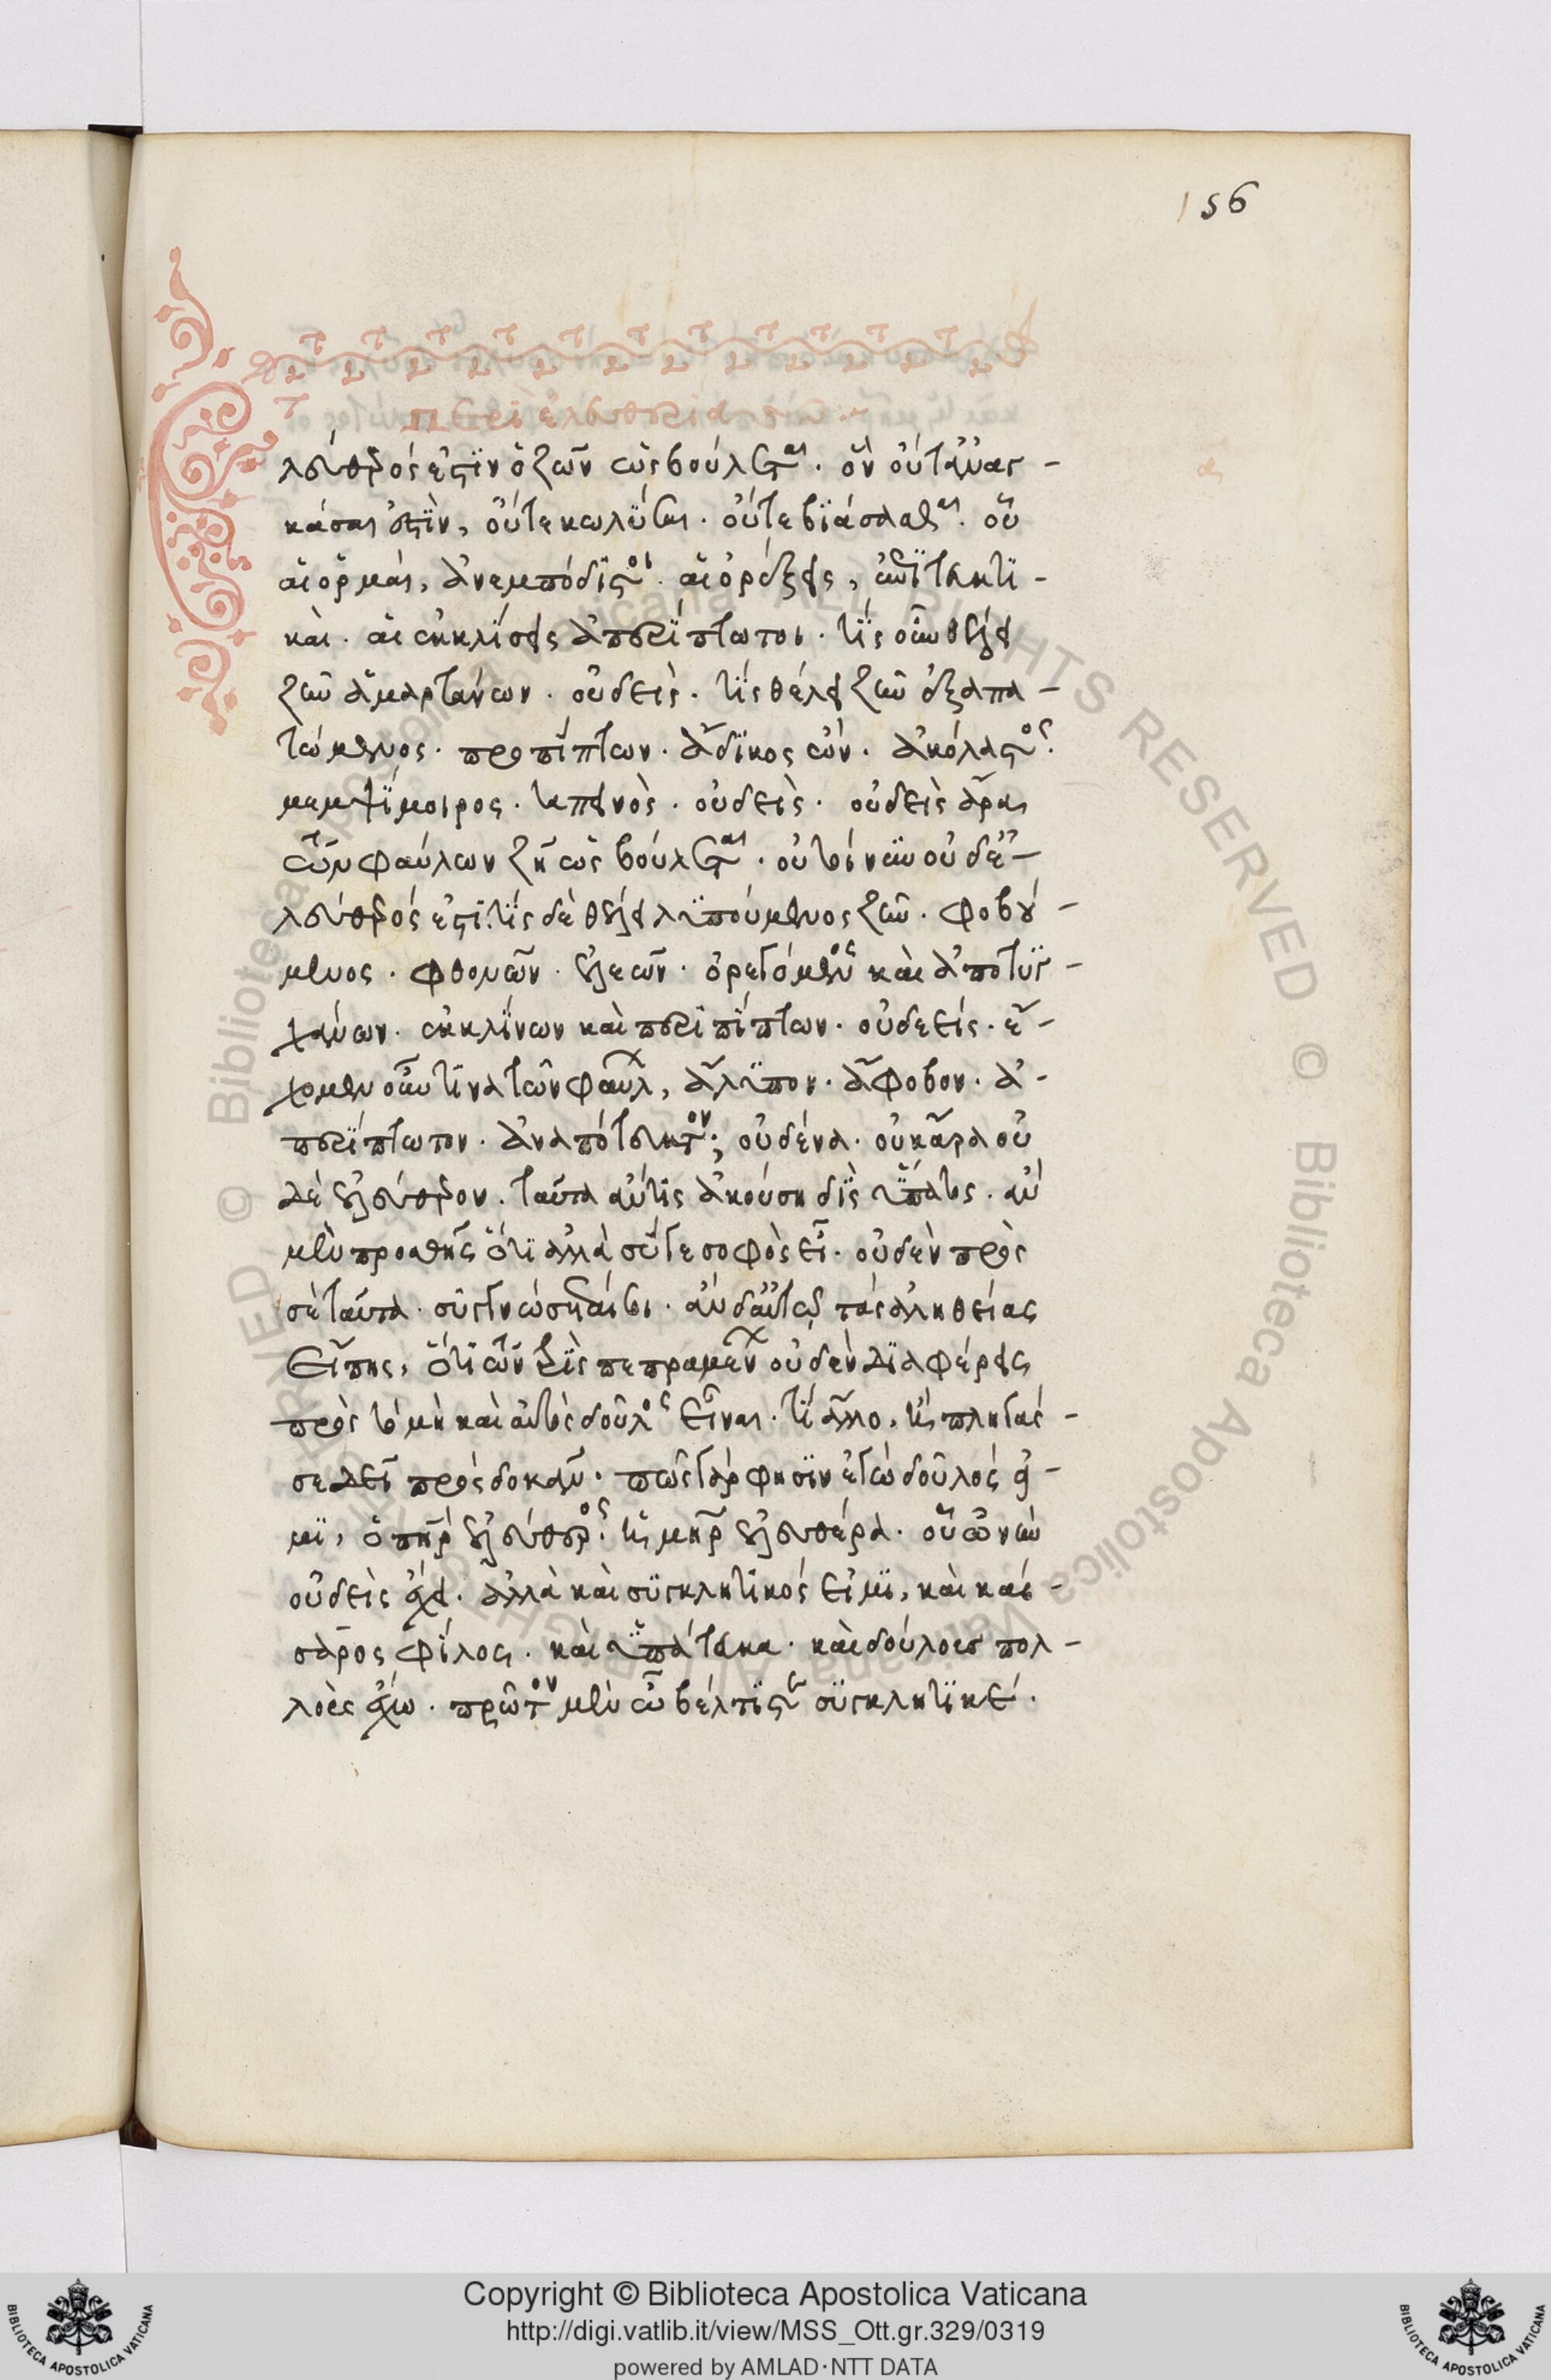 156
περὶ ἐλευθερίας
λεύθερός ἐστιν ὁ ζῶν ὡς βούλεται· ὃν οὔτ' ἀναγ-
κάσαι ἐστὶν, οὔτε κωλῦσαι· οὔτε βιάσασθαι· οὗ
αἱ ὁρμαὶ, ἀνεμπόδιστοι· αἱ ὀρέξεις, ἐπιτευκτι-
καὶ· αἱ ἐκκλίσεις ἀπερίπτωτοι· τίς οὖν θέλει
ζῆν ἁμαρτάνων· οὐδεὶς· τίς θέλει ζῆν ἐξαπα-
τώμενος· προπίπτων· ἄδικος ὤν· ἀκόλαστος·
μεμψίμοιρος· ταπεινὸς· οὐδεὶς· οὐδεὶς ἄρα
τῶν φαύλων ζῇ ὡς βούλεται· οὐ τοίνυν οὐδ' ἐ-
λεύθερός ἐστι· τίς δὲ θέλει λυπούμενος ζῆν· φοβού-
μενος· φθονῶν· ἐλεῶν· ὀρεγόμενος καὶ ἀποτυγ-
χάνων· ἐκκλίνων καὶ περιπίπτων· οὐδείς· ἔ-
χομεν οὖν τινα τῶν φαύλων, ἄλυπον· ἄφοβον· ἀ-
περίπτωτον· ἀναπότευκτον; οὐδένα· οὐκ ἄρα οὐ
δὲ ἐλεύθερον· ταῦτα ἄν τις ἀκούσῃ δὶς ὕπατος· ἂν
μὲν προσθῇς ὅτι ἀλλὰ σύ γε σοφὸς εἶ· οὐδὲν πρὸς
σὲ ταῦτα· συγγνώσεταί σοι· ἂν δ' αὐτῷ τὰς ἀληθείας
εἴπῃς, ὅτι τῶν τρὶς πεπραμένων οὐδὲν διαφέρεις
πρὸς τὸ μὴ καὶ αὐτὸς δοῦλος εἶναι· τί ἄλλο, ἢ πληγάς
σε δεῖ προσδοκᾶν· πῶς γὰρ φησὶν ἐγὼ δοῦλός εἰ-
μι, ὁ πατὴρ ἐλεύθερος· ἡ μήτηρ ἐλευθέρα· οὗ ὠνὴν
οὐδεὶς ἔχει· ἀλλὰ καὶ συγκλητικός εἰμι, καὶ καί-
σαρος φίλος· καὶ ὑπάτευκα· καὶ δούλους πολ-
λοὺς ἔχω· πρῶτον μὲν ὦ βέλτιστε συγκλητικέ·
Copyright © Biblioteca Apostolica Vaticana
http://digi.vatlib.it/view/MSS_Ott.gr.329/0319
powered by AMLAD·NTT DATA